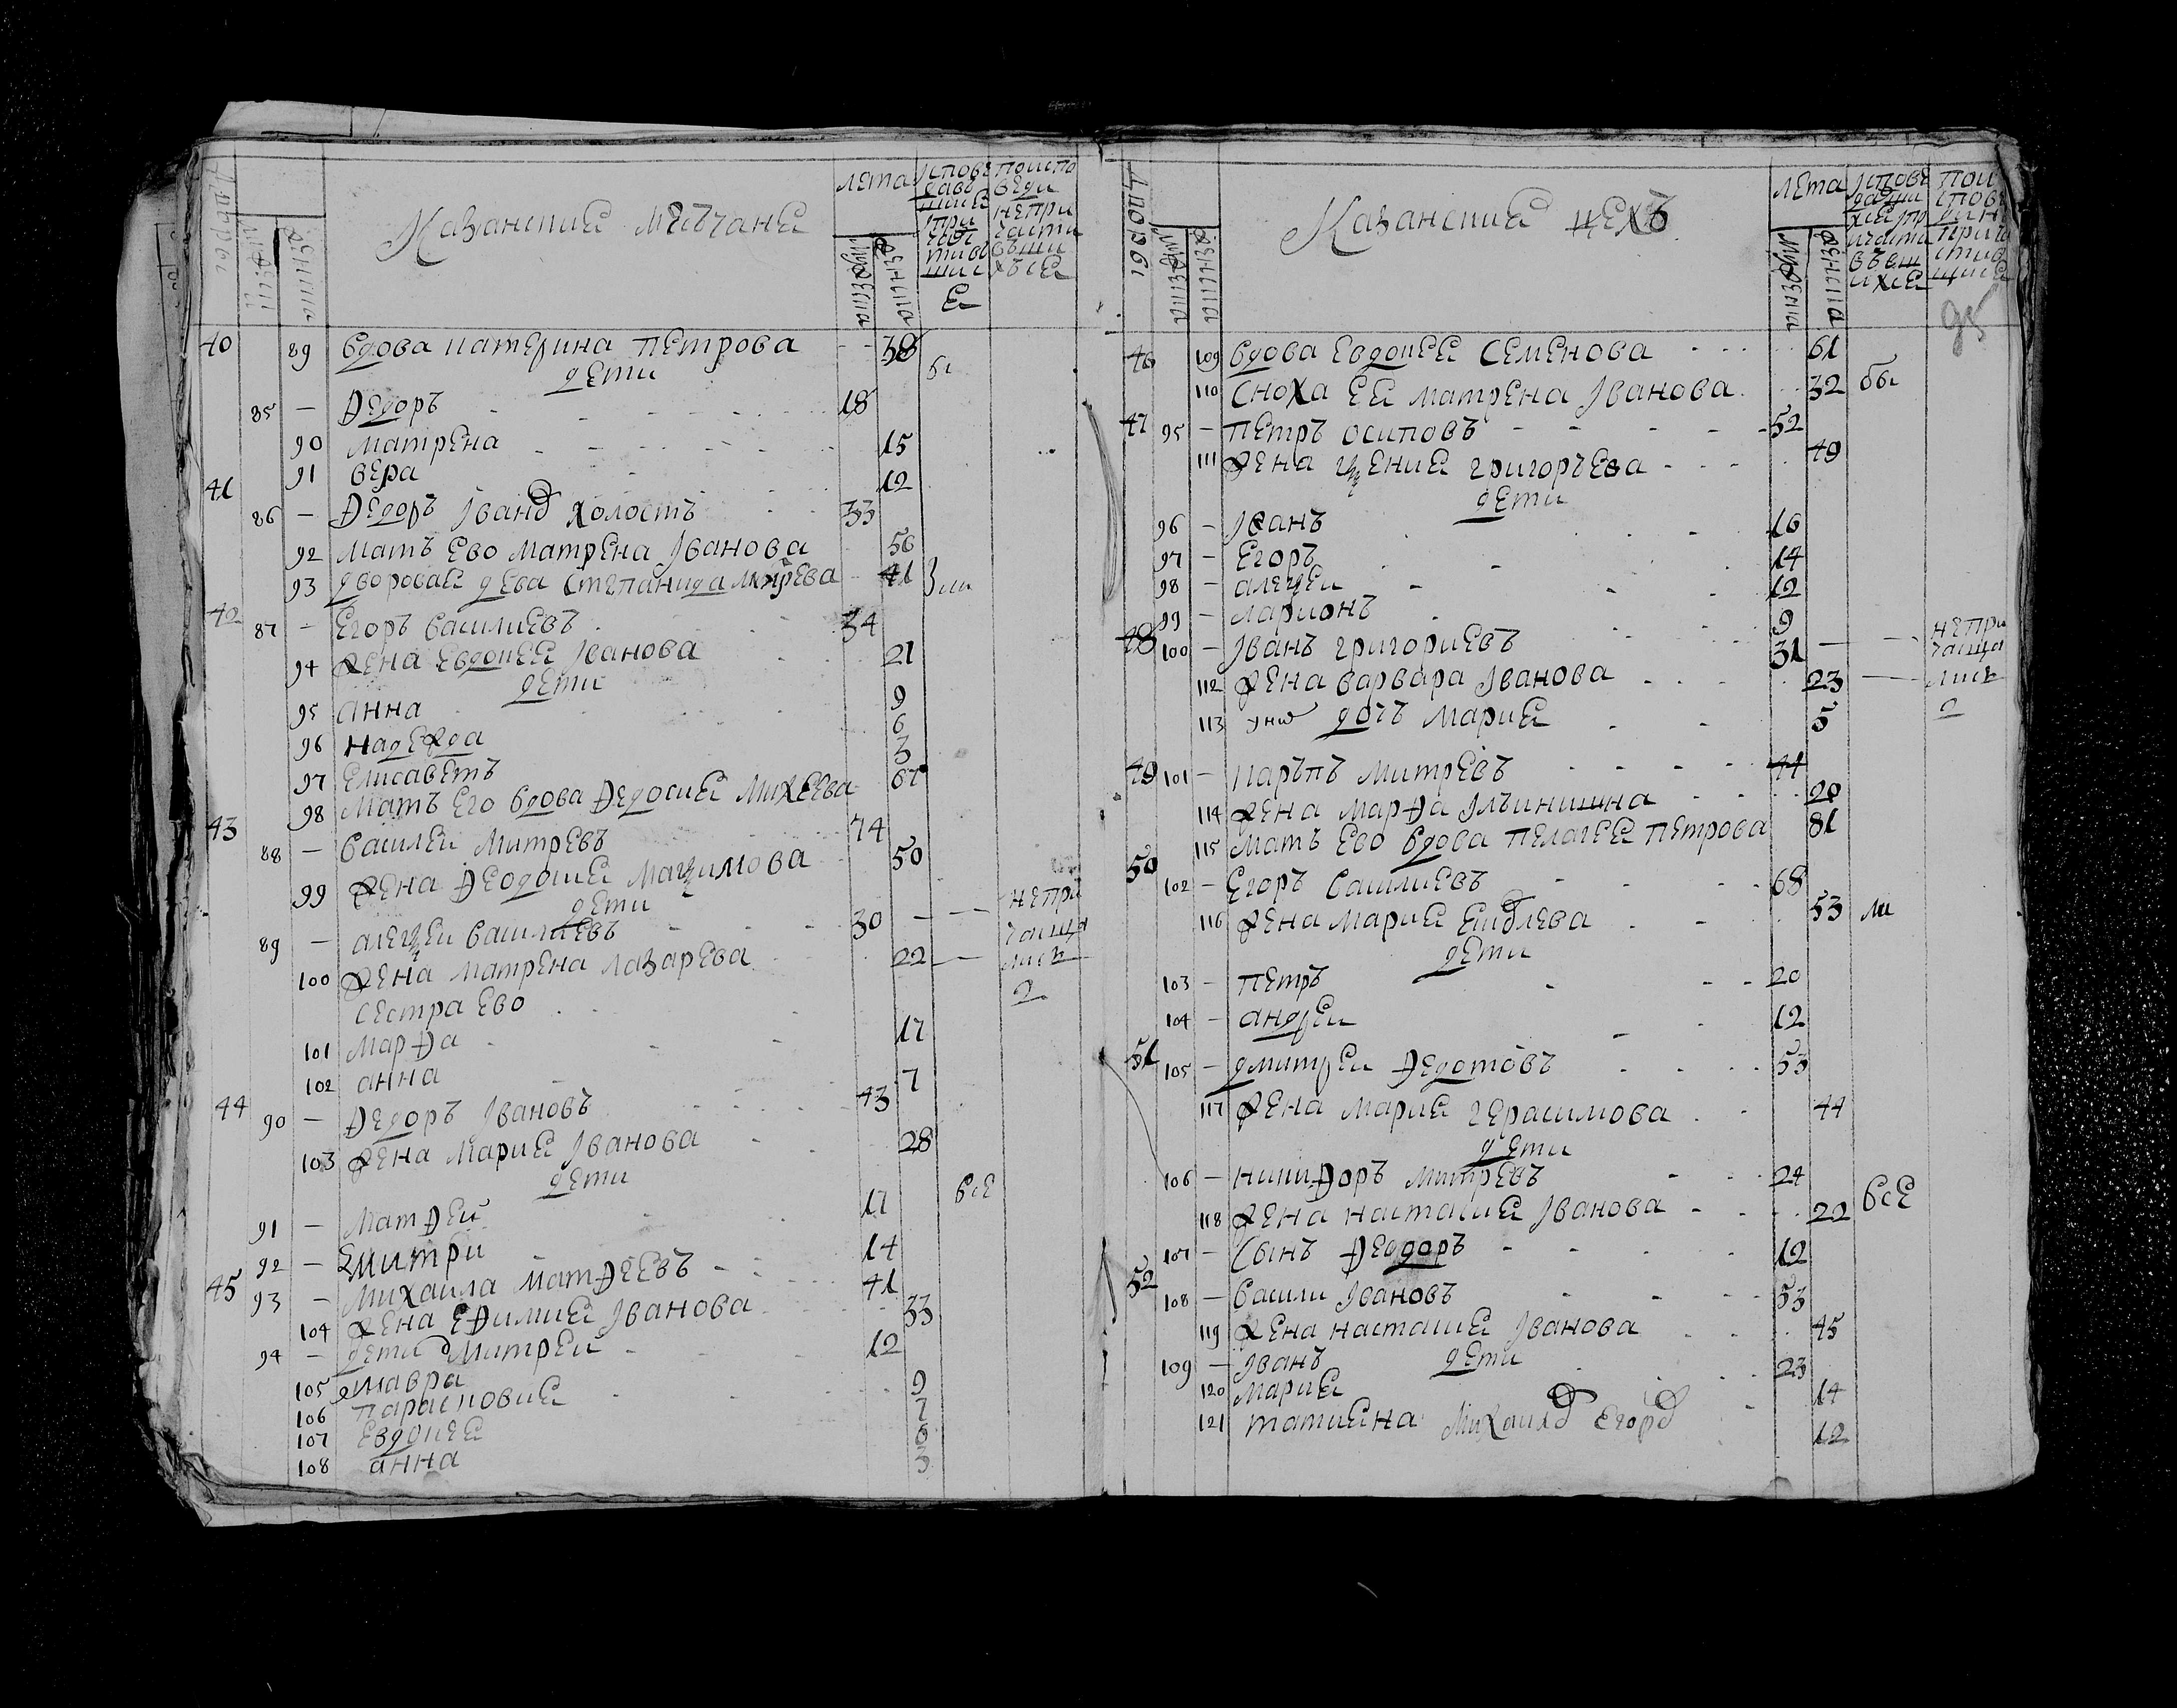 Казанский мещане
лета
40 89 вдова катерина петрова 38
дети
85 — Ѳедоръ 18
90 матрена 15
91 вера 12
41 86 — Ѳедоръ Iванов холостъ 33
92 мать ево матрена Iванова 56
93 дворовая дева степанида 41
42 87 — Егоръ василиевъ 34
94 жена евдокея Iванова 21
дети
95 анна 9
96 надежда 6
97 елисаветъ 3
98 мать его вдова Ѳедосия михеева 67
43 88 — василеи митревъ 74
99 жена Ѳеодосия маѯимова 50
дети
89 — алеѯеи василиевъ 30 — — непри
чаща
100 жена матрена лазарева 22 — лись
2
сестра ево
101 марѲа 17
102 анна 7
44 90 — Ѳедоръ Iвановъ 43
103 жена мария Iванова 28
дети
все
91 — матѲеи 17
92 — Дмитри 14
45 93 — михаила матѲеевъ 41
104 жена еѲимия Iванова 33
94 — дети Дмитреи 12
105 мавра 9
106 парасковия 7
107 евдокея 6
108 анна 3
Казанский цехъ
лета
95
46 109 вдова евдокея семенова 61
110 сноха ея матрена Iванова 32 бы
47 95 — петръ осиповъ 52
111 жена ѯения григорьева 49
дети
96 — Iванъ 16
97 — егоръ 14
98 — алеѯеи 12
99 — ларионъ 9
48 100 — Iванъ григориевъ 31 — — непри
чаща
112 жена варвара Iванова 23 — лись
113 дочь мария 5 2
49 101 — митревъ 44
114 жена марѲа Iльинишна 20
115 мать ево вдова пелагея петрова 81
50 102 — егоръ василиевъ 68
116 жена мария 53 ли
дети
103 — петръ 20
104 — андреи 12
51 105 — дмитреи Ѳедотовъ 53
117 жена мария герасимова 44
дети
106 — никиѲоръ митревъ 24
118 жена настасия Iванова 22 все
107 — сынъ Ѳеодоръ 12
52 108 — васили Iвановъ 53
119 жена настасия Iванова 45
109 — Iванъ дети 23
120 мария 14
121 татияна михаилов егоров 12